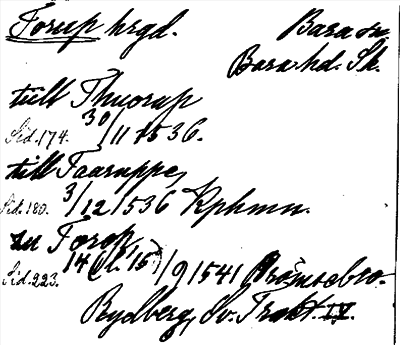 Torup hrgd. Bara sn
Bara hd. Sk.
till Thuorup
Sid. 174. 30/11 1536.
till Taaruppe,
Sid. 180. 3/12 1536 Kphmn.
zu Torop,
Sid. 223. 14 (l. 15)/9 1541 Brömsebro.
Rydberg, Sv. Trakt. IV.